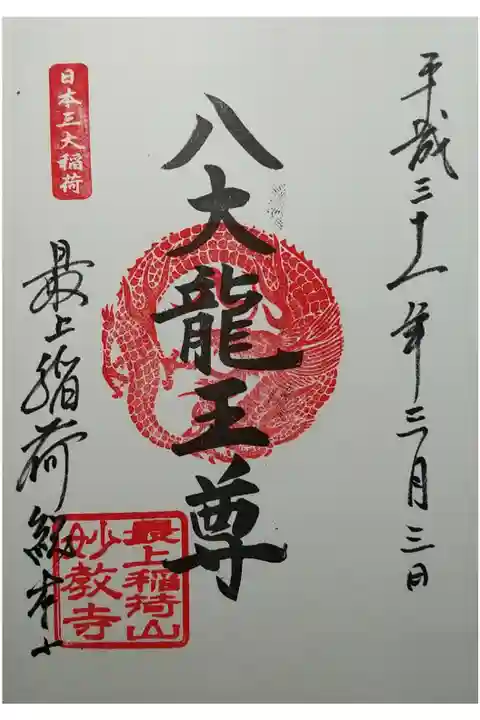 平成三十一年三月三日
八大龍王尊
日本三大稲荷
最上稲荷総本山
最上稲荷山
妙教寺